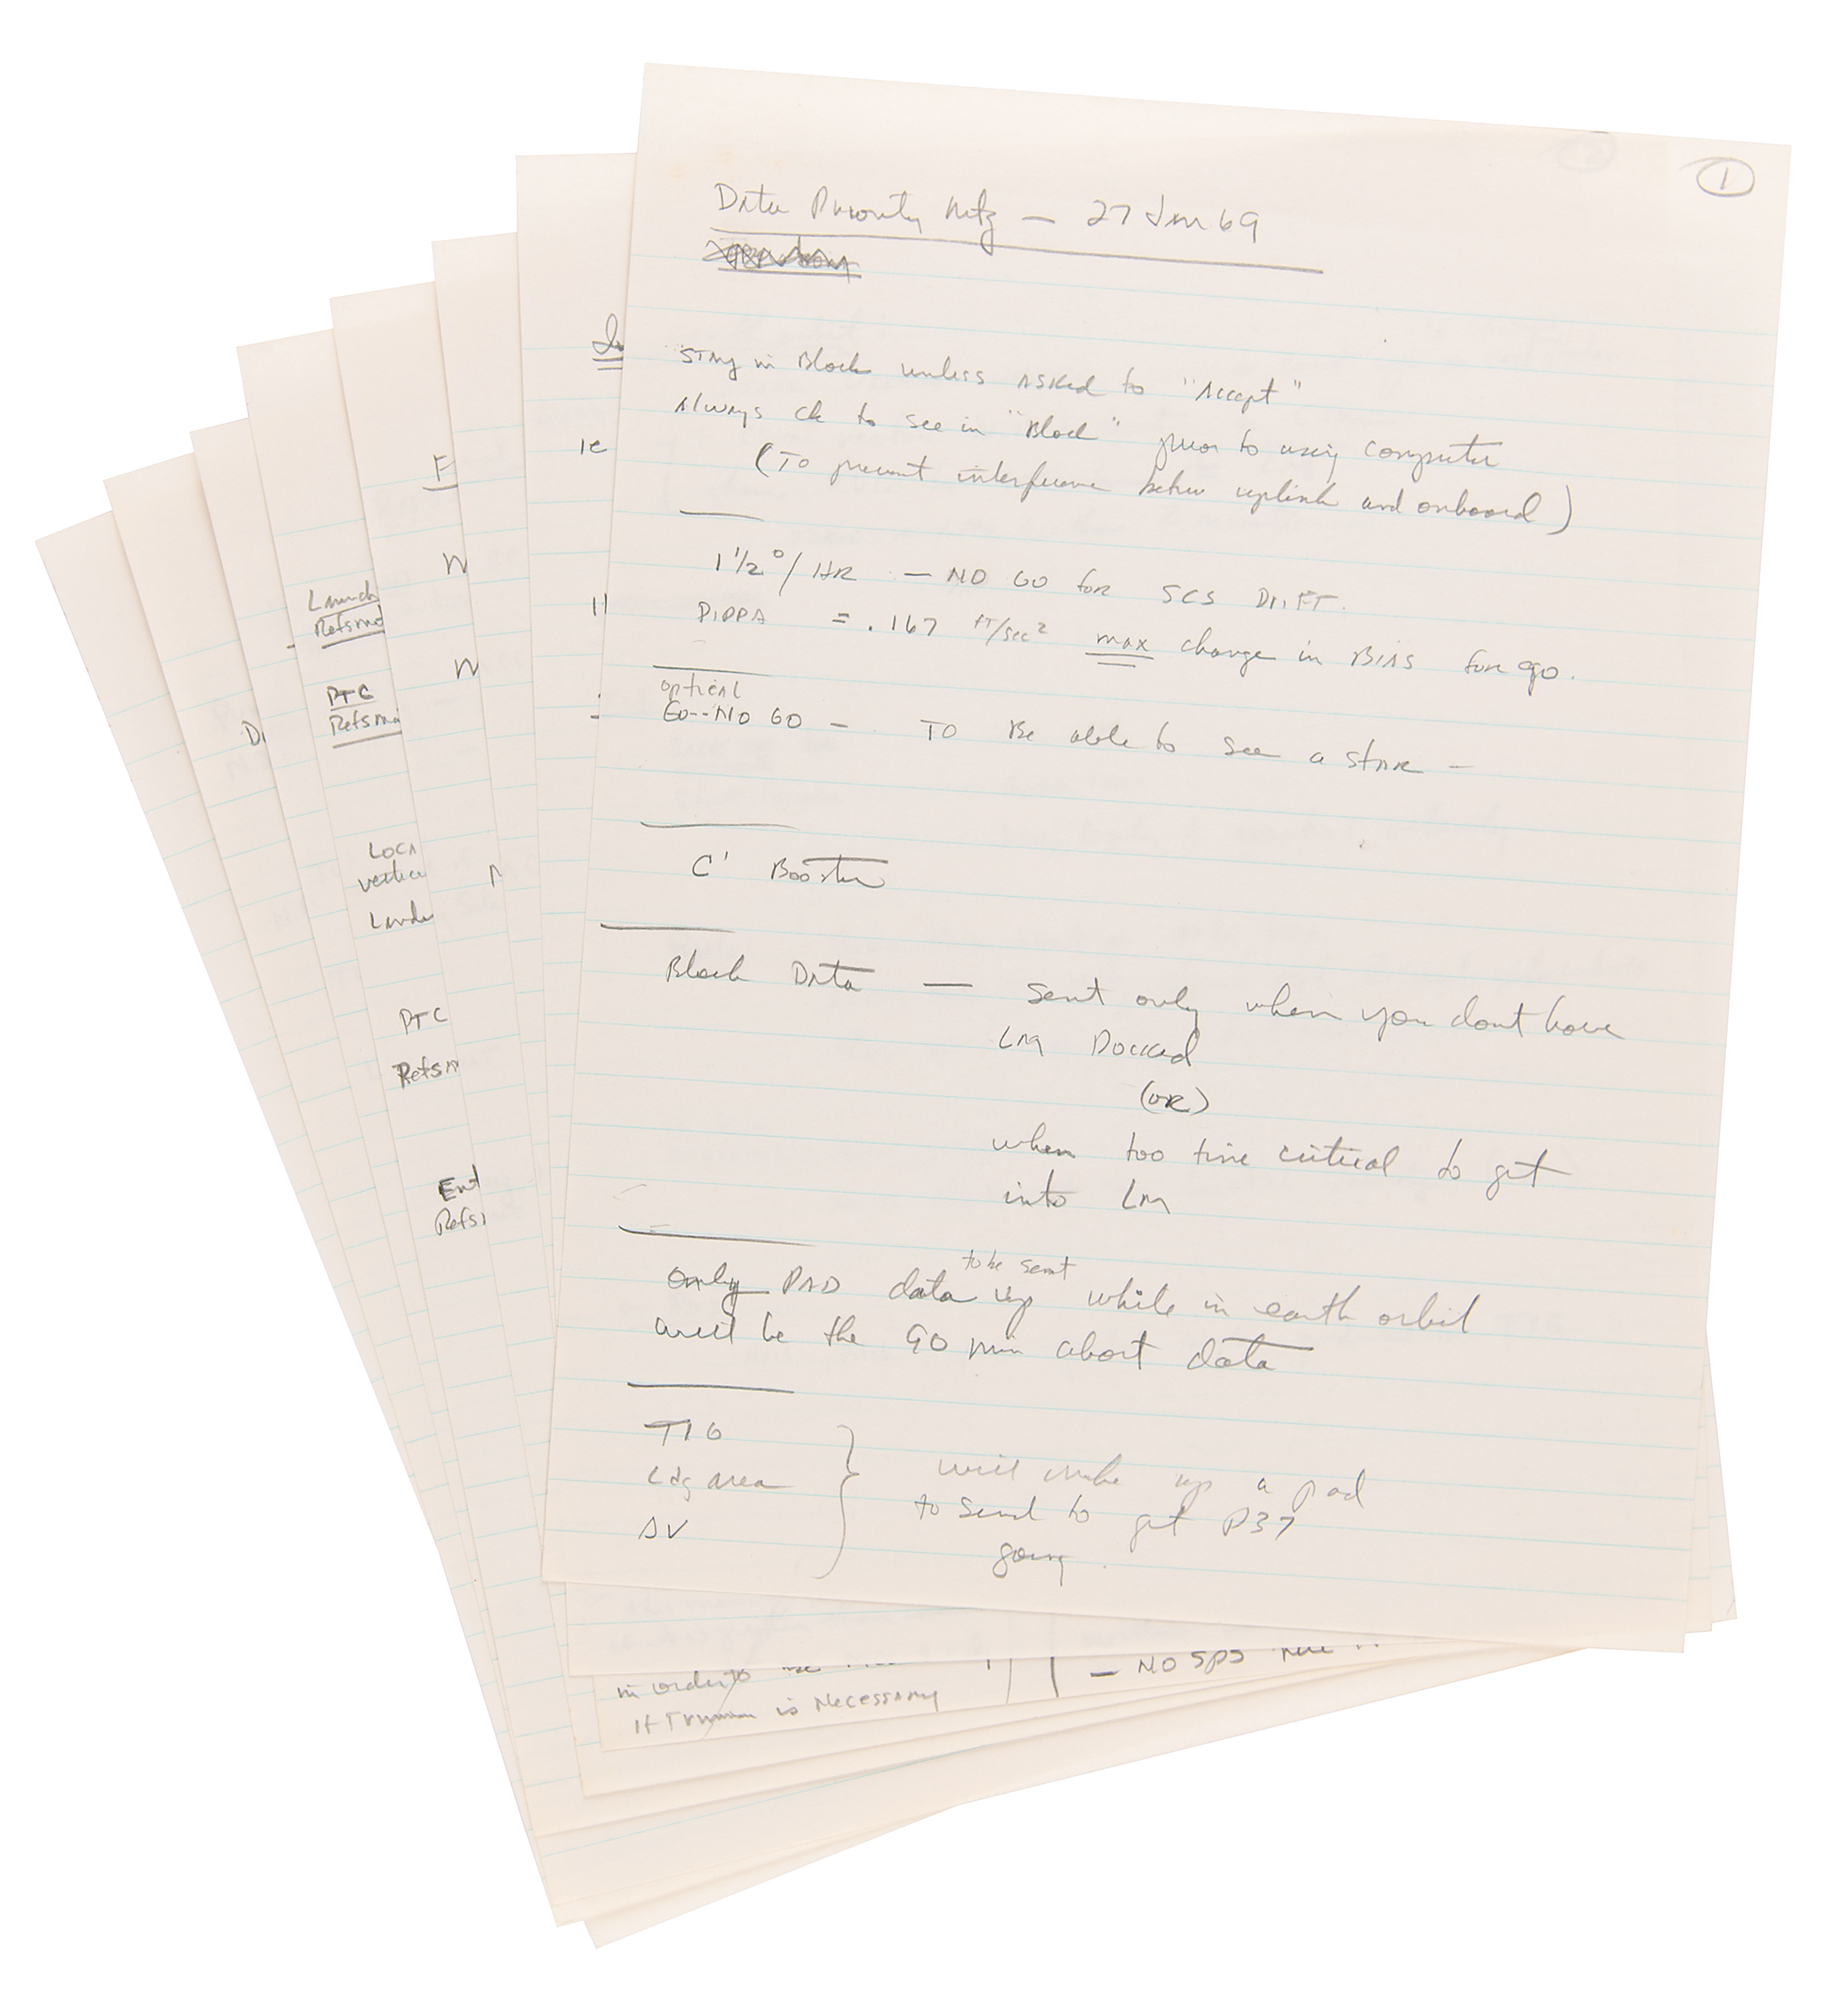 1
Data Priority Mtg — 27 Jan 69
Stay in Block unless asked to "Accept"
Always ck to see in "Block" prior to using computer
(To prevent interference betwn uplink and onboard)
1 1/2°/HR — NO GO for SCS Drift.
PIPPA = .167 FT/sec² max change in BIAS for go.
optical
GO--NO GO — TO Be able to see a star —
C' Booster
Block Data — sent only when you dont have
LM Docked
(OR)
when too time critical to get
into LM
to be sent
Only PAD data up while in earth orbit
will be the 90 min abort data
TIG
Ldg area
ΔV
will make up a pad
to send to get P37
going.
Launch
Refsmo
PTC
Refsma
Loca
vertica
Lande
PTC
Refsm
Ent
Refs
in order to
If Trunnion is Necessary
— NO SPS